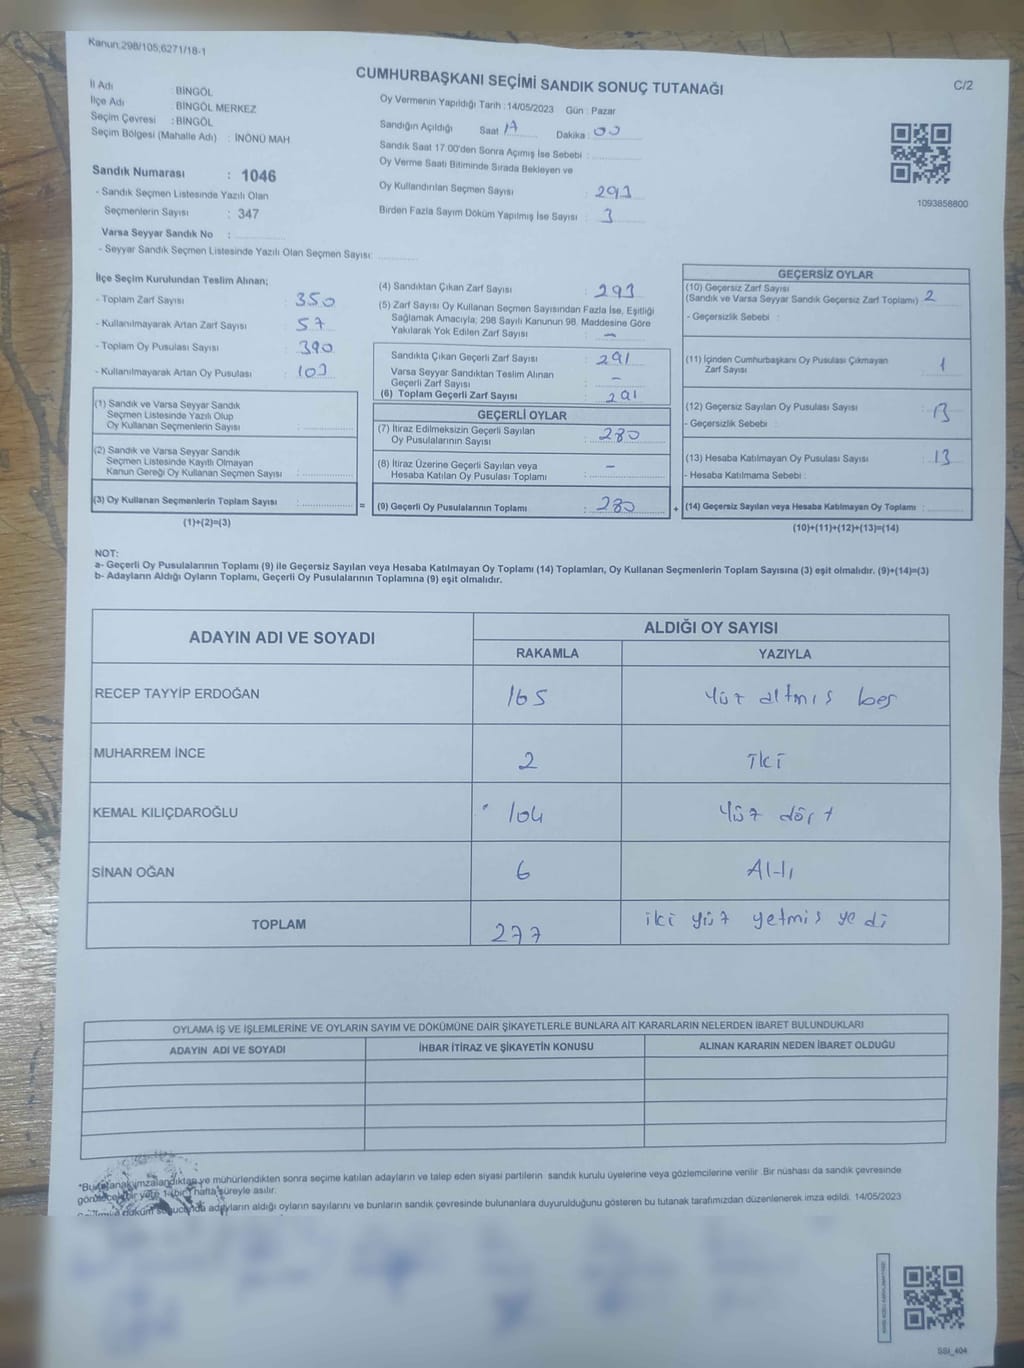 Kanun:298/105;6271/18-1
CUMHURBAŞKANI SEÇİMİ SANDIK SONUÇ TUTANAĞI
C/2
İl Adı : BİNGÖL
İlçe Adı : BİNGÖL MERKEZ
Seçim Çevresi : BİNGÖL
Seçim Bölgesi (Mahalle Adı) : İNÖNÜ MAH
Oy Vermenin Yapıldığı Tarih : 14/05/2023 Gün : Pazar
Sandığın Açıldığı Saat 17 Dakika : 00
Sandık Saat 17:00'den Sonra Açımış İse Sebebi :
Oy Verme Saati Bitiminde Sırada Bekleyen ve
Oy Kullandırılan Seçmen Sayısı : 293
Birden Fazla Sayım Döküm Yapılmış İse Sayısı : 3
1093858800
Sandık Numarası : 1046
- Sandık Seçmen Listesinde Yazılı Olan
Seçmenlerin Sayısı : 347
Varsa Seyyar Sandık No :
- Seyyar Sandık Seçmen Listesinde Yazılı Olan Seçmen Sayısı:
İlçe Seçim Kurulundan Teslim Alınan;
- Toplam Zarf Sayısı : 350
- Kullanılmayarak Artan Zarf Sayısı : 57
- Toplam Oy Pusulası Sayısı : 390
- Kullanılmayarak Artan Oy Pusulası : 103
(1) Sandık ve Varsa Seyyar Sandık
Seçmen Listesinde Yazılı Olup
Oy Kullanan Seçmenlerin Sayısı :
(2) Sandık ve Varsa Seyyar Sandık
Seçmen Listesinde Kayıtlı Olmayan
Kanun Gereği Oy Kullanan Seçmen Sayısı :
(3) Oy Kullanan Seçmenlerin Toplam Sayısı : =
(1)+(2)=(3)
(4) Sandıktan Çıkan Zarf Sayısı : 293
(5) Zarf Sayısı Oy Kullanan Seçmen Sayısından Fazla İse, Eşitliği
Sağlamak Amacıyla; 298 Sayılı Kanunun 98. Maddesine Göre
Yakılarak Yok Edilen Zarf Sayısı : -
Sandıkta Çıkan Geçerli Zarf Sayısı : 291
Varsa Seyyar Sandıktan Teslim Alınan
Geçerli Zarf Sayısı : -
(6) Toplam Geçerli Zarf Sayısı : 291
GEÇERLİ OYLAR
(7) İtiraz Edilmeksizin Geçerli Sayılan
Oy Pusulalarının Sayısı : 280
(8) İtiraz Üzerine Geçerli Sayılan veya
Hesaba Katılan Oy Pusulası Toplamı : -
(9) Geçerli Oy Pusulalarının Toplamı : 280 +
GEÇERSİZ OYLAR
(10) Geçersiz Zarf Sayısı
(Sandık ve Varsa Seyyar Sandık Geçersiz Zarf Toplamı) : 2
- Geçersizlik Sebebi :
(11) İçinden Cumhurbaşkanı Oy Pusulası Çıkmayan
Zarf Sayısı : 1
(12) Geçersiz Sayılan Oy Pusulası Sayısı : 13
- Geçersizlik Sebebi :
(13) Hesaba Katılmayan Oy Pusulası Sayısı : 13
- Hesaba Katılmama Sebebi :
(14) Geçersiz Sayılan veya Hesaba Katılmayan Oy Toplamı :
(10)+(11)+(12)+(13)=(14)
NOT:
a- Geçerli Oy Pusulalarının Toplamı (9) ile Geçersiz Sayılan veya Hesaba Katılmayan Oy Toplamı (14) Toplamları, Oy Kullanan Seçmenlerin Toplam Sayısına (3) eşit olmalıdır. (9)+(14)=(3)
b- Adayların Aldığı Oyların Toplamı, Geçerli Oy Pusulalarının Toplamına (9) eşit olmalıdır.
ADAYIN ADI VE SOYADI
ALDIĞI OY SAYISI
RAKAMLA YAZIYLA
RECEP TAYYİP ERDOĞAN 165 Yüz altmış beş
MUHARREM İNCE 2 iki
KEMAL KILIÇDAROĞLU 104 Yüz dört
SİNAN OĞAN 6 Altı
TOPLAM 277 iki yüz yetmiş yedi
OYLAMA İŞ VE İŞLEMLERİNE VE OYLARIN SAYIM VE DÖKÜMÜNE DAİR ŞİKAYETLERLE BUNLARA AİT KARARLARIN NELERDEN İBARET BULUNDUKLARI
ADAYIN ADI VE SOYADI İHBAR İTİRAZ VE ŞİKAYETİN KONUSU ALINAN KARARIN NEDEN İBARET OLDUĞU
*Bu tutanak imzalandıktan ve mühürlendikten sonra seçime katılan adayların ve talep eden siyasi partilerin sandık kurulu üyelerine veya gözlemcilerine verilir. Bir nüshası da sandık çevresinde
görülecek bir yere 1 (bir) hafta süreyle asılır.
döküm sonucunda adayların aldığı oyların sayılarını ve bunların sandık çevresinde bulunanlara duyurulduğunu gösteren bu tutanak tarafımızdan düzenlenerek imza edildi. 14/05/2023
SSI_404